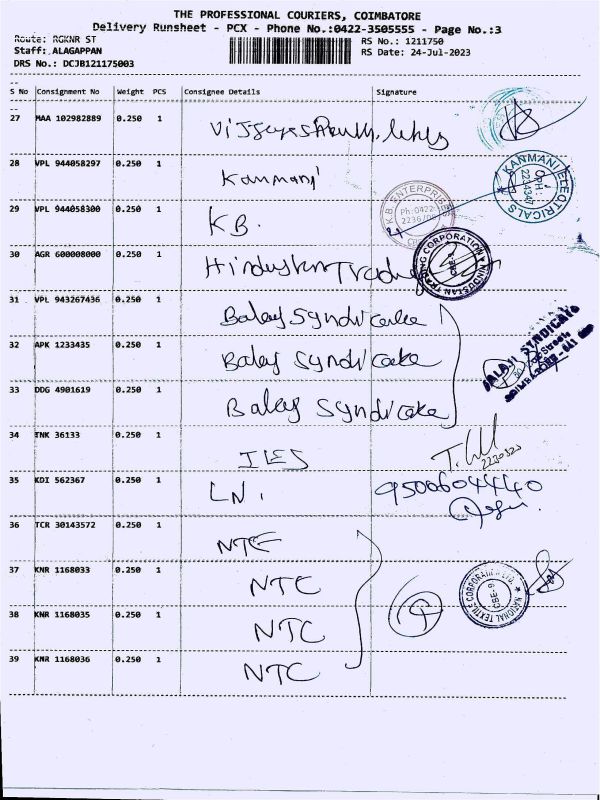 THE PROFESSIONAL COURIERS, COIMBATORE
Delivery Runsheet - PCX - Phone No.:0422-3505555 - Page No.:3
Route: RGKNR ST
RS No.: 1211750
Staff: ALAGAPPAN
RS Date: 24-Jul-2023
DRS No.: DCJB121175003
S No Consignment No Weight PCS Consignee Details Signature
27 MAA 102982889 0.250 1
28 VPL 944058297 0.250 1 Kanmani
KANMANI ELECTRICALS
OPH :
2234347
29 VPL 944058300 0.250 1 KB.
K.B. ENTERPRISE
Ph:0422
30 AGR 600008000 0.250 1 Hindustan Trading
HINDUSTAN TRADING CORPORATION
CBE-9
31 VPL 943267436 0.250 1 Balaj Syndicate
32 APK 1233435 0.250 1 Balaj Syndicate
BALAJI SYNDICATE
33 DDG 4901619 0.250 1 Balaj Syndicate
34 TNK 36133 0.250 1 IES
35 KDI 562367 0.250 1 LN. 9500604440
36 TCR 30143572 0.250 1 NTC
37 KNR 1168033 0.250 1 NTC
NATIONAL TEXTILE CORPORATION LTD.
CBE-9
38 KNR 1168035 0.250 1 NTC
39 KNR 1168036 0.250 1 NTC